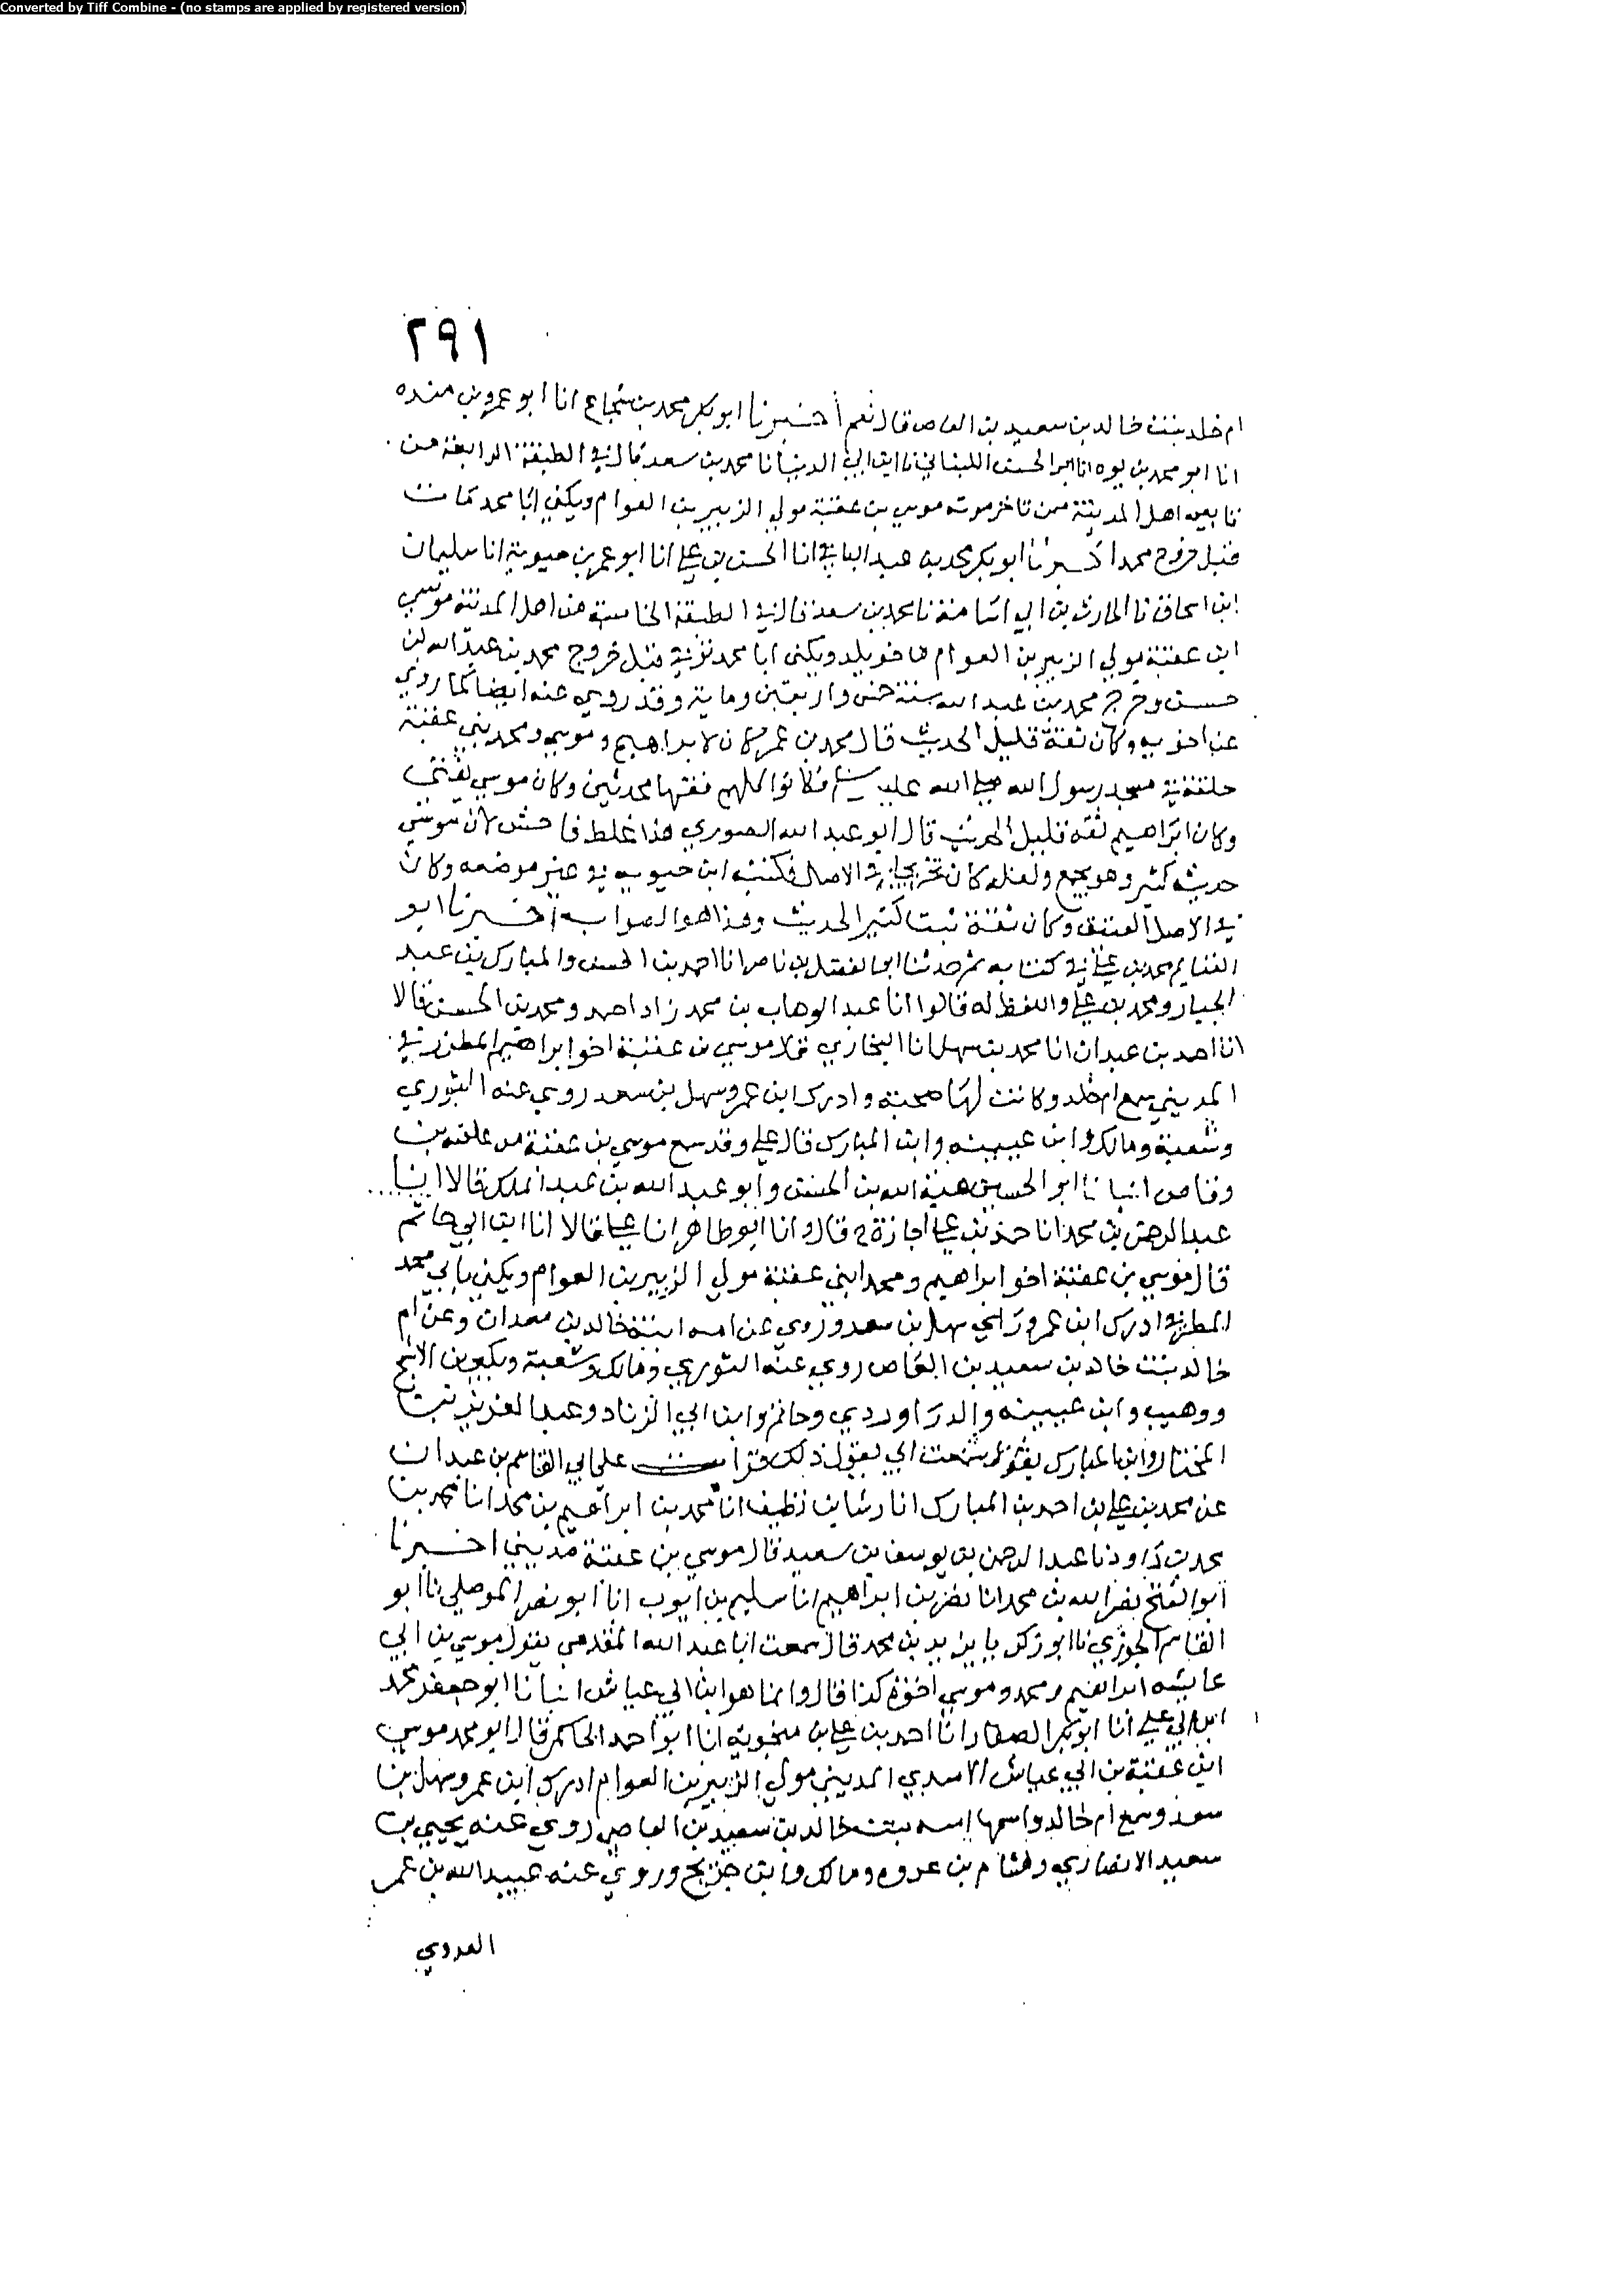 Converted by Tiff Combine - (no stamps are applied by registered version)
٢٩١
ام خلد بنت خالد بن سعيد بن العاص قال نعم أخبرنا ابو بكر محمد بن شجاع انا ابو عمرو بن منده
انا ابو محمد بن يوه انا ابو الحسن اللبناني نا ابن ابي الدنيا نا محمد بن سعد قال في الطبقة الرابعة من
تابعي اهل المدينة ممن تاخر موته موسي بن عقبة مولي الزبير بن العوام ويكني ابا محمد مات
قبل خروج محمد اخبرنا ابو بكر محمد بن عبد الباقي انا الحسن بن علي انا ابو عمر بن حيوية انا سليمان
ابن اسحاق نا الحارث بن ابي اسامة نا محمد بن سعد قال في الطبقة الخامسة من اهل المدينة موسي
ابن عقبة مولي الزبير بن العوام بن خويلد ويكني ابا محمد توفي قبل خروج محمد بن عبد الله بن
حسن وخرج محمد بن عبد الله سنة خمس واربعين وماية وقد روي عنه ايضا كما روي
عن اخويه وكان ثقة قليل الحديث قال محمد بن عمر كان لابراهيم وموسي ومحمد بني عقبة
حلقة في مسجد رسول الله صلي الله عليه وسلم فكانوا كلهم فقها محدثين وكان موسي يفتي
وكان ابراهيم ثقه قليل الحديث قال ابو عبد الله الصوري هذا غلط فاحش لان موسي
حديثه كثير وهو يجمع ولعله كان تخريجا في الاصل فكتبه ابن حيويه في غير موضعه وكان
في الاصل العتيق وكان ثقة ثبت كثير الحديث وهذا هو الصواب اخبرنا ابو
الغنايم محمد بن علي في كتابه ثم حدثنا ابو الفضل بن ناصر انا احمد بن الحسن والمبارك بن عبد
الجبار ومحمد بن علي واللفظ له قالوا انا عبد الوهاب بن محمد زاد احمد ومحمد بن الحسن قالا
انا احمد بن عبدان انا محمد بن سهل انا البخاري قال موسي بن عقبة اخو ابراهيم المطرقي
المديني سمع ام خلد وكانت لها صحبة وادرك ابن عمر وسهل بن سعد روي عنه الثوري
وشعبة ومالك وابن عيينه وابن المبارك قال علي وقد سمع موسي بن عقبة من علقمه بن
وقاص انبانا ابو الحسين هبة الله بن الحسن وابو عبد الله بن عبد الملك قالا انبا
عبد الرحمن بن محمد انا حمد بن علي اجازة ح قال وانا ابو طاهر انا علي قالا انا ابن ابي حاتم
قال موسي بن عقبة اخو ابراهيم ومحمد ابني عقبة مولي الزبير بن العوام ويكني بابي محمد
المطرقي ادرك ابن عمر وراي سهل بن سعد وروي عن امه ابنة خالد بن معدان وعن ام
خالد بنت خالد بن سعيد بن العاص روي عنه الثوري ومالك وشعبة وبكير بن الاشج
ووهيب وابن عيينه والدراوردي وحاتم وابن ابي الزناد وعبد العزيز بن
المختار وابن المبارك يقول سمعت ابي يقول ذلك قرات علي ابي القاسم بن عبدان
عن محمد بن علي بن احمد بن المبارك انا رشا بن نظيف انا محمد بن ابراهيم بن محمد انا محمد بن
محمد بن داود نا عبد الرحمن بن يوسف بن سعيد قال موسي بن عقبة مديني اخبرنا
ابو الفتح نصر الله بن محمد انا نصر بن ابراهيم انا سليم بن ايوب انا ابو نصر الموصلي نا ابو
القاسم الجوزي نا ابو زكريا يزيد بن محمد قال سمعت ابا عبد الله المقدمي يقول موسي بن ابي
عايشه ابراهيم ومحمد وموسي اخوة كذا قال وانما هو ابن ابي عياش انبانا ابو جعفر محمد
ابن ابي علي انا ابو بكر الصفار انا احمد بن علي بن منجوية انا ابو احمد الحاكم قال ابو محمد موسي
ابن عقبة بن ابي عياش الاسدي المديني مولي الزبير بن العوام ادرك ابن عمر وسهل بن
سعد وسمع ام خالد واسمها امه بنت خالد بن سعيد بن العاص روي عنه يحيي بن
سعيد الانصاري وهشام بن عروه ومالك وابن جريج وروي عنه عبيد الله بن عمر
العدوي